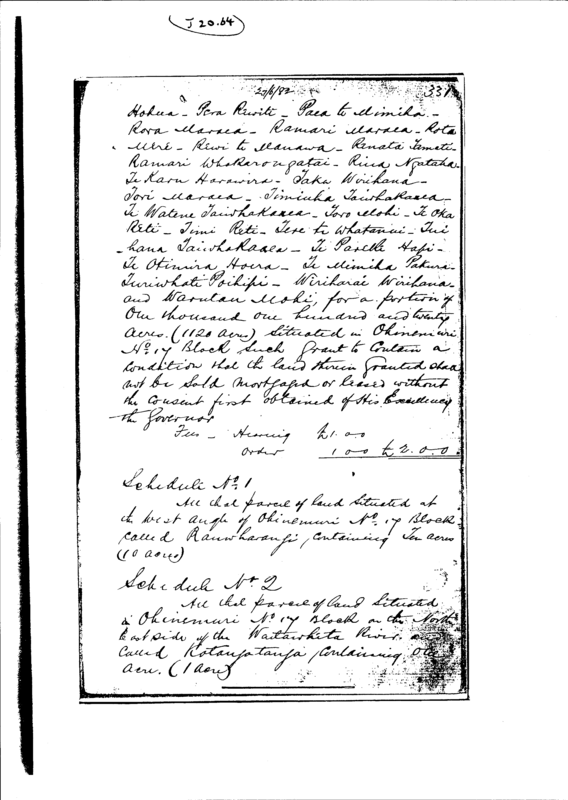 J 20.64
27/6/82 331
Hohua _ Pera Rewiti _ Paea te Mimiha _
Rora Maraea _ Ramari Maraea _ Rota
Mere _ Rewi te Manawa _ Renata Tamati
Ramari Whakarongatai _ Rina Ngataha
Te Karu Harawira _ Taka Wirihana _
Tori Maraea _ Timiuha Taiwhakaaea _
Te Watene Taiwhakaaea _ Toro Mohi _ Te Oka
Reti _ Timi Reti _ Tere te Whatanui _ Tui
-hana Taiwhakaaea _ Te Hapi _
Te Otimira Hoera _ Te Mimiha Pakura
Turiwhati Poihipi _ Wiriharai Wirihana
and Mohi, for a portion of
One thousand one hundred and twenty
Acres. (1120 acres) Situated in Ohinemuri
No. 17 Block such Grant to Contain a
condition that the land therein Granted shall
not be sold mortgaged or leased without
the consent first obtained of His Excellency
the Governor
Fees _ Hearing £1.00
Order 1 00 £2.0.0
Schedule No. 1
All that parcel of land Situated at
the West angle of Ohinemuri No. 17 Block
called containing Ten acres
(10 acres)
Schedule No. 2
All that parcel of land Situated
in Ohinemuri No 17 Block on the North
East side of the Waitawheta River
Called Rotangatanga, Containing One
acre. (1 acre)